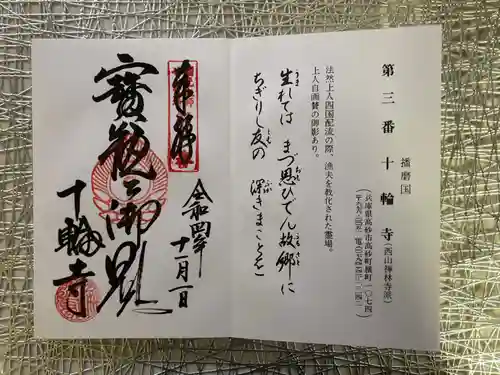 播磨国
第三番 十輪寺(西山禅林寺派)
(兵庫県高砂市高砂町横町一〇七四
法然上人四国配流の際、漁夫を教化された霊場。
上人自画賛の御影あり。
生れては まづ思ひでん 故郷に
ちぎりし友の 深きまことを
奉拝
令和四年
十一月一日
寶瓶御影
十輪寺